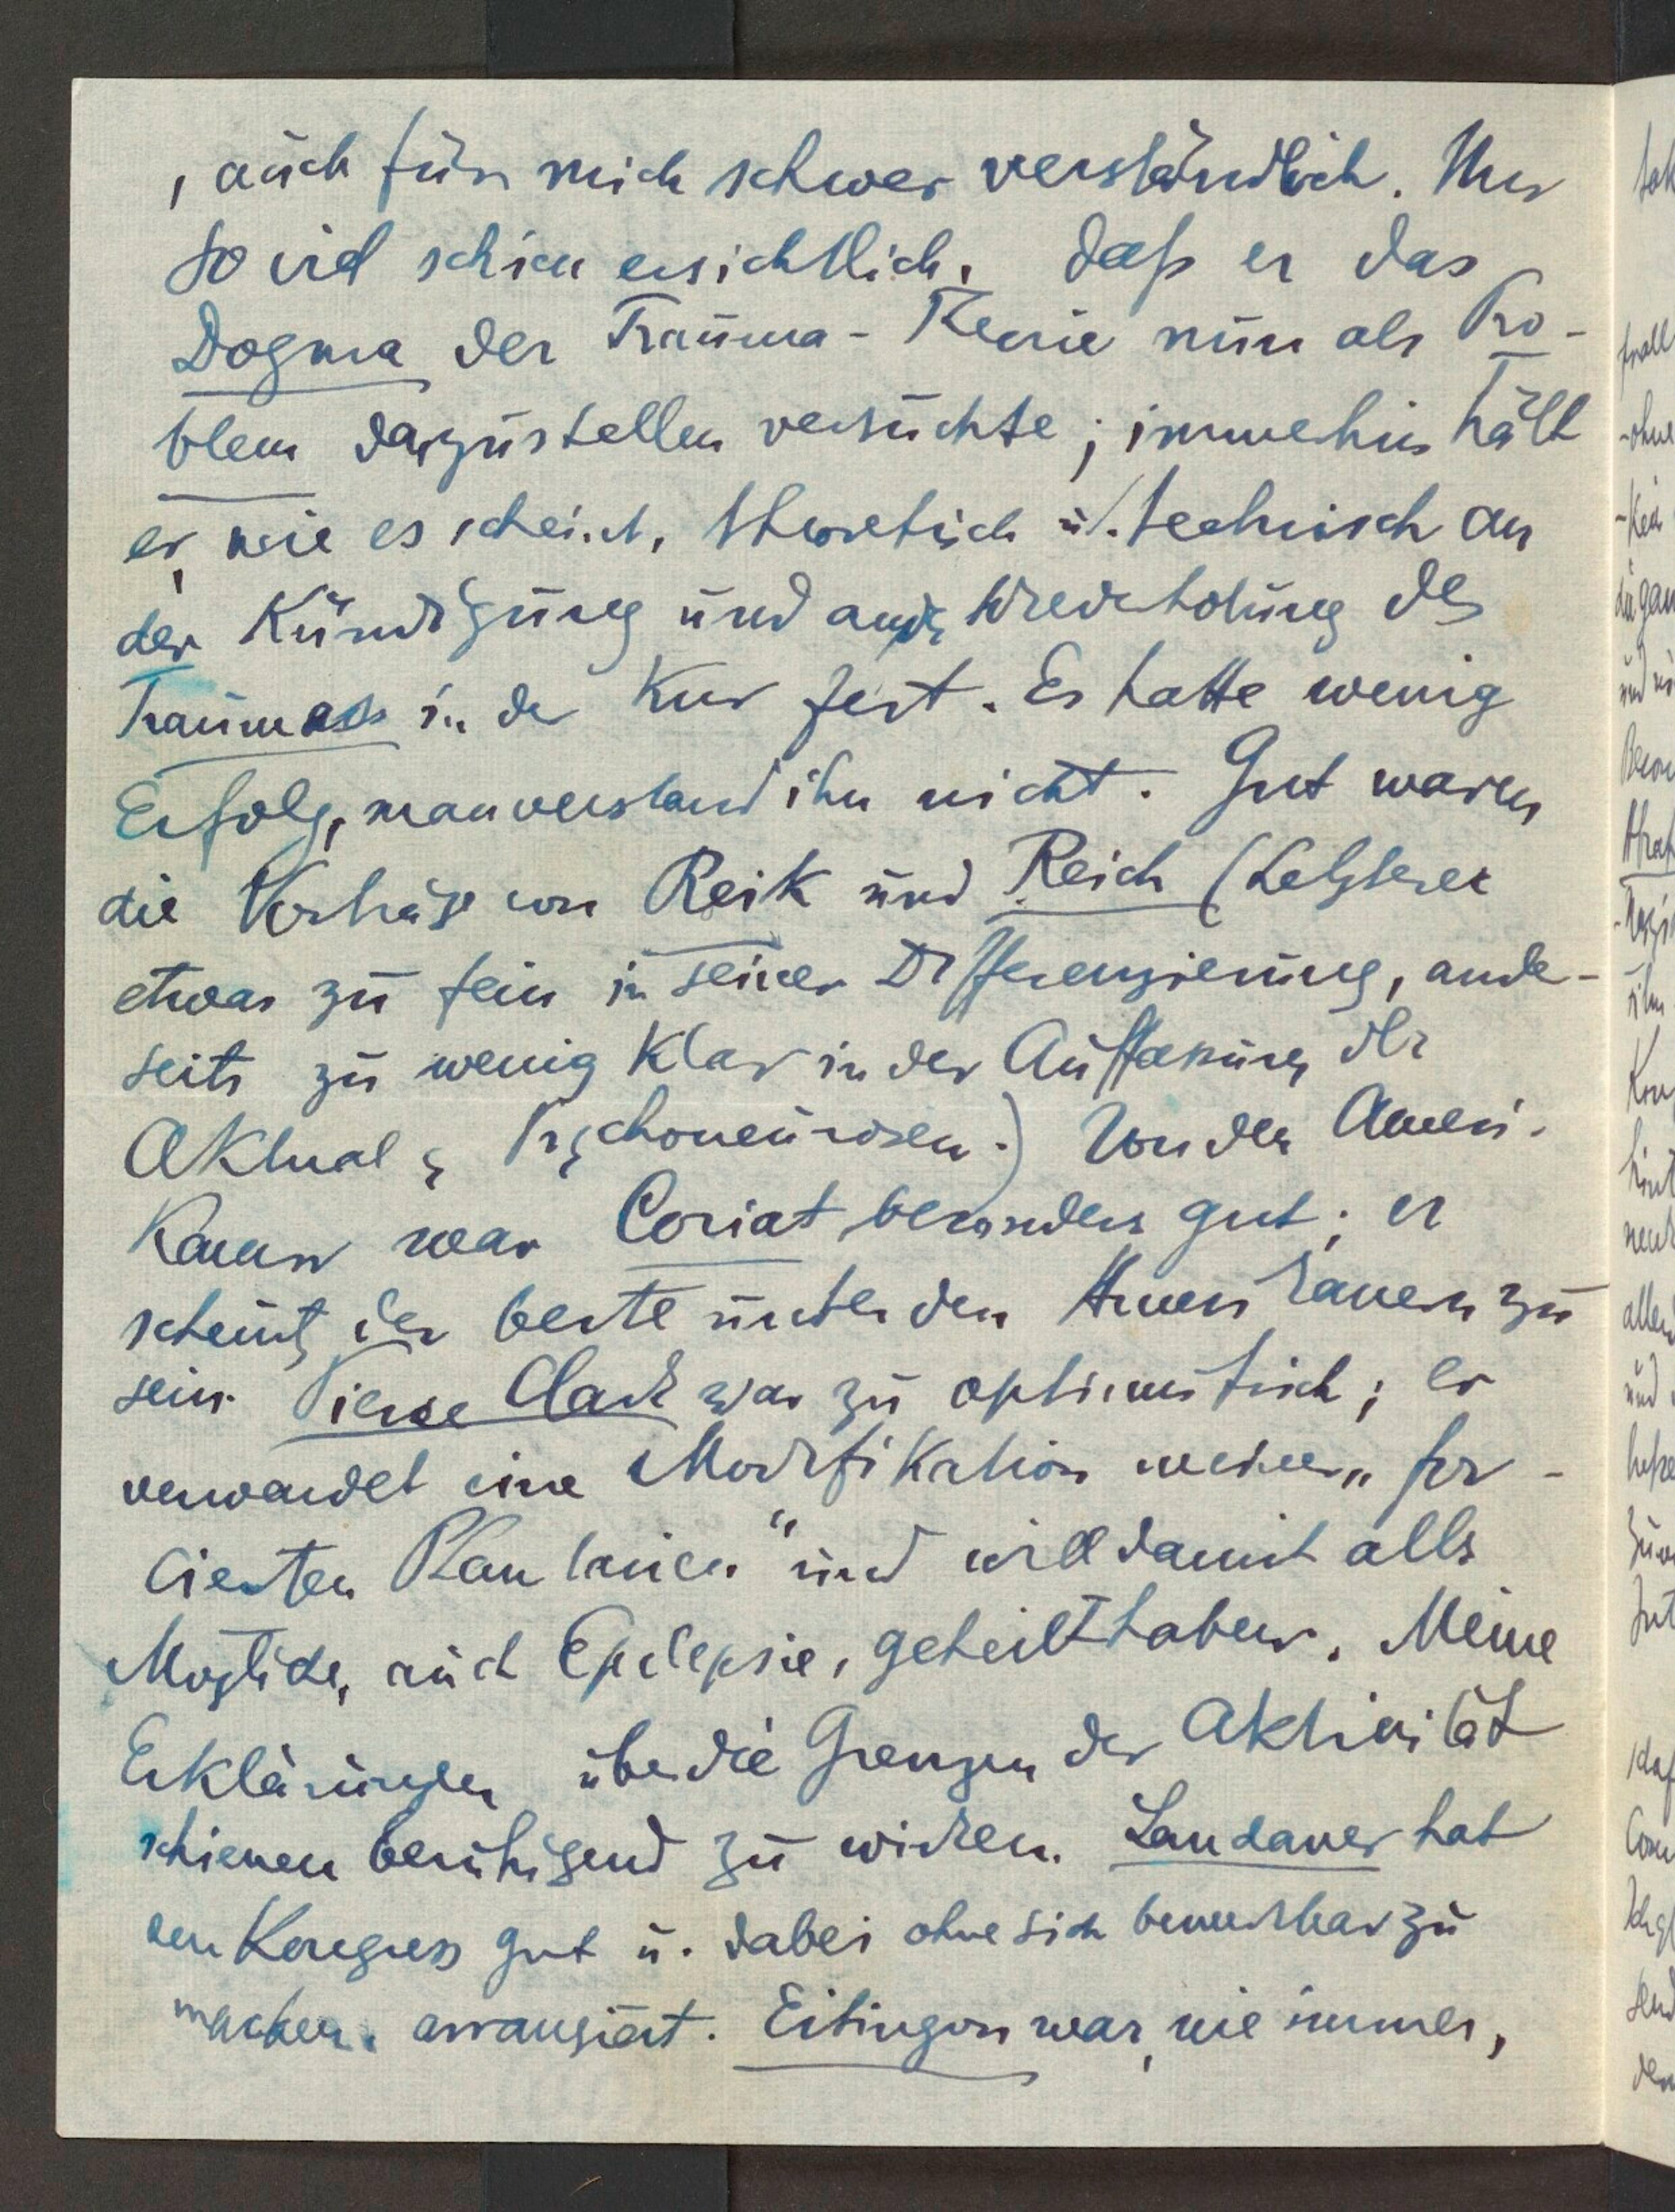 , auch für mich schwer verständlich. Nur
so viel schien ersichtlich, daß er das
Dogma der Trauma-Theorie nun als Pro-
blem darzustellen versuchte; immerhin hält
er, wie es scheint, theoretisch u. technisch an
der Kündigung und an der Wiederholung des
Traumas in der Kur fest. Er hatte wenig
Erfolg, man verstand ihn nicht. Gut waren
die Vorträge von Reik und Reich (Letzterer
etwas zu fein in seiner Differenzierung, ander-
seits zu wenig klar in der Auffassung der
Aktual & Psychoneurosen.) Von den Ameri-
kanern war Coriat besonders gut; er
scheint der beste unter den Amerikanern zu
sein. Pierce Clark war zu optimistisch; er
verwendet eine Modifikation meiner „for-
cierten Phantasien" und will damit alles
Mögliche, auch Epilepsie, geheilt haben. Meine
Erklärungen über die Grenzen der Aktivität
schienen beruhigend zu wirken. Landauer hat
den Kongress gut u. dabei ohne sich bemerkbar zu
machen, arrangiert. Eitingon war, wie immer,